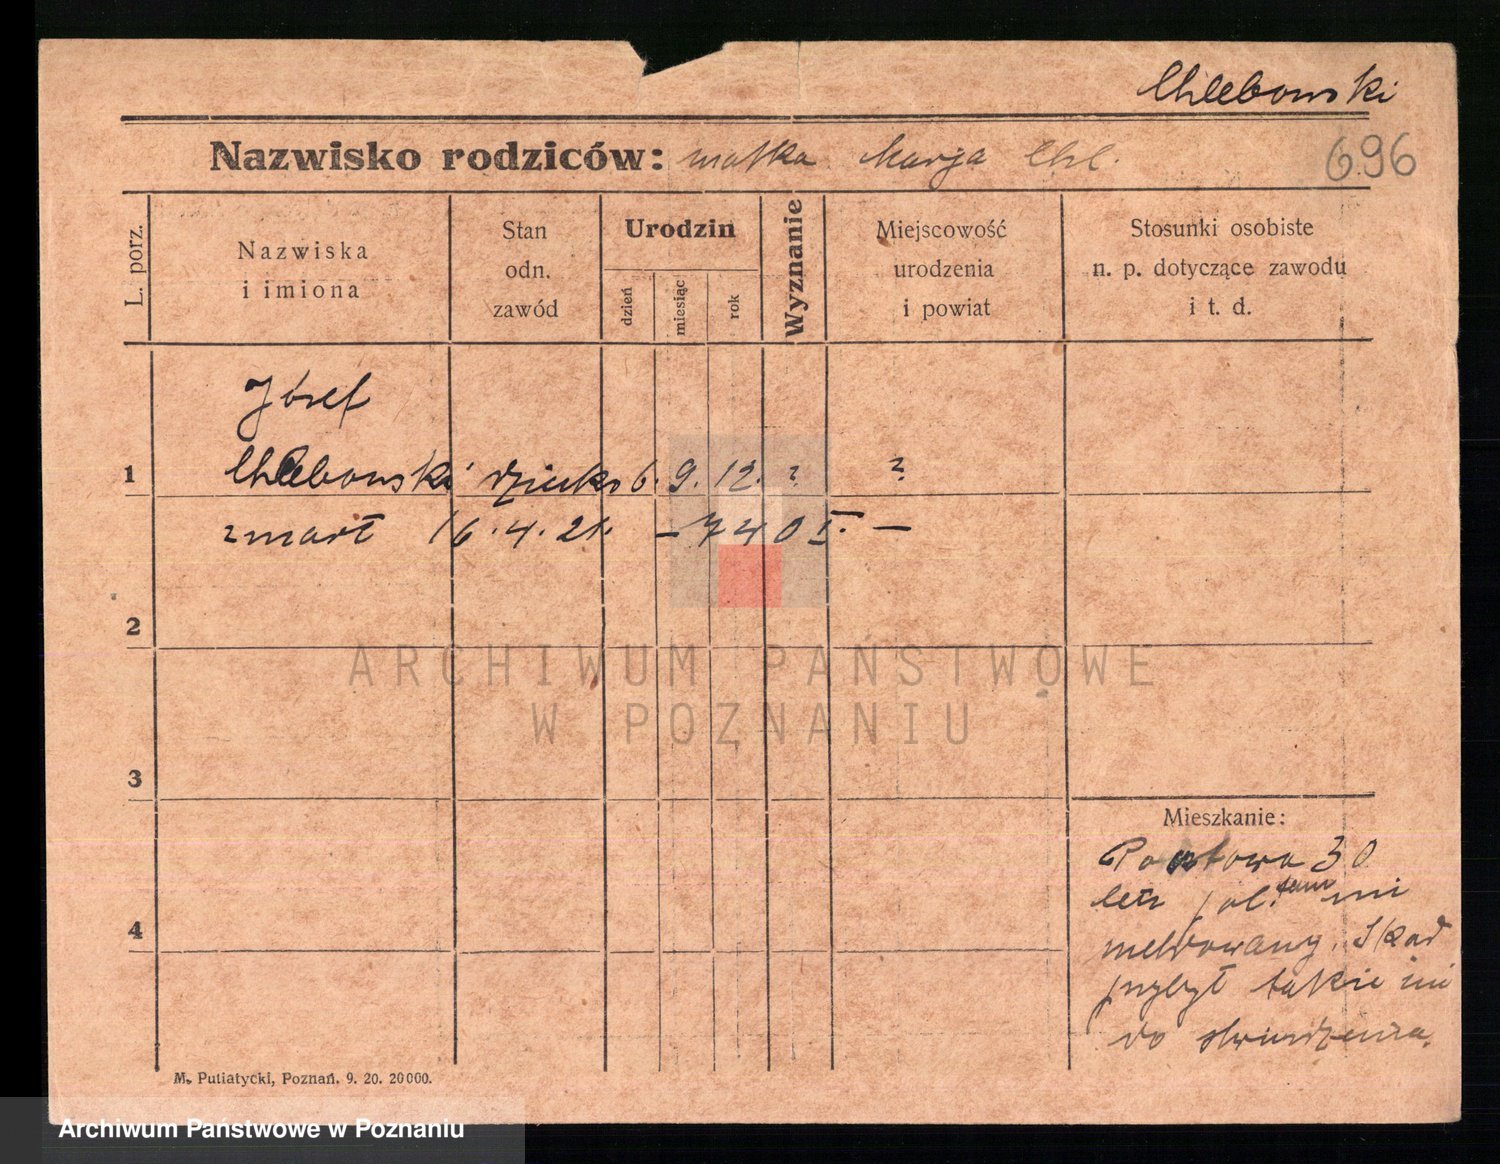 Chlebowski
Nazwisko rodziców: matka Marja Chl.
696
L. porz.
Nazwiska
i imiona
Stan
odn.
zawód
Urodzin
dzień
miesiąc
rok
Wyznanie
Miejscowość
urodzenia
i powiat
Stosunki osobiste
n. p. dotyczące zawodu
i t. d.
Józef
1 Chlebowski dziecko 6. 9. 12. ? ?
zmarł 16. 4. 21. – 740 I. –
2
3
4
Mieszkanie:
Pocztowa 30
lecz tam ni
meldowany. Skąd
przybył także ni
do stwierdzenia.
M. Putiatycki, Poznań. 9. 20. 20000.
ARCHIWUM PAŃSTWOWE
W POZNANIU
Archiwum Państwowe w Poznaniu